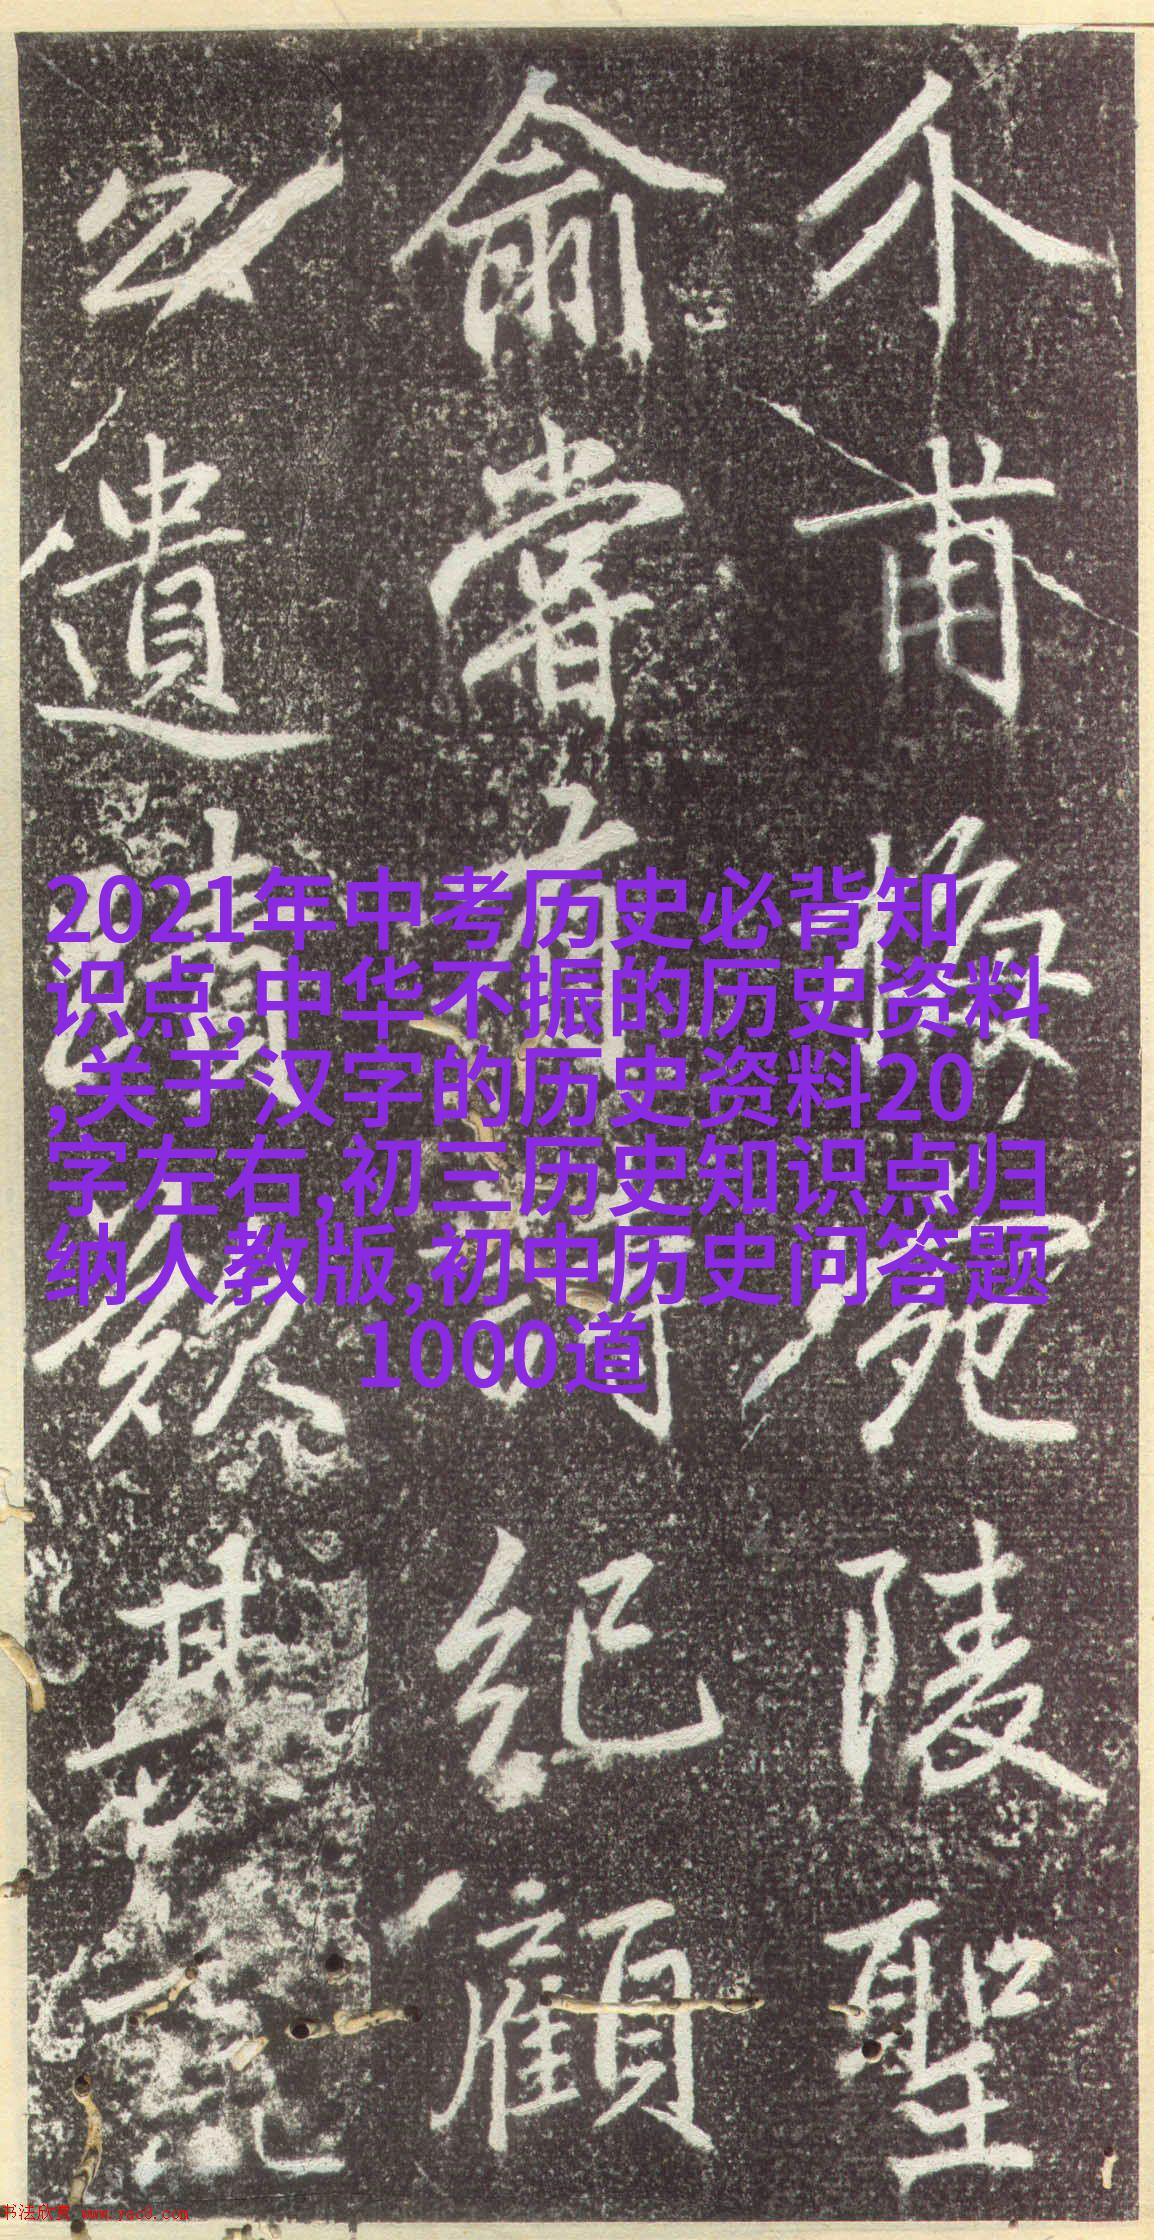 介甫宛陵聖
俞嘗有詩紀顧
遺蹟其
2021年中考历史必背知
识点,中华不振的历史资料
,关于汉字的历史资料20
字左右,初三历史知识点归
纳人教版,初中历史问答题
1000道
书法欣赏 www.yac8.com